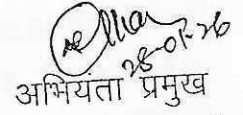 28-01-26
अभियंता प्रमुख